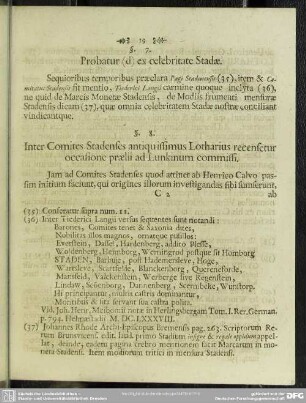 19
§. 7.
Probatur (d) ex celebritate Stadæ.
Sequioribus temporibus præclara Pagi Stadensis (35), item & Co-
mitatus Stadensis fit mentio, Tiderici Langii carmine quoque inclyta (36),
ne quid de Marcis Monetæ Stadensis, de Modiis frumenti mensuræ
Stadensis dicam (37), quæ omnia celebritatem Stadæ nostræ conciliant
vindicantque.
§. 8.
Inter Comites Stadenses antiquissimus Lotharius recensetur
occasione prælii ad Lunkinum commissi.
Jam ad Comites Stadenses quod attinet ab Henrico Calvo pas-
sim initium faciunt, qui origines illorum investigandas sibi sumserunt,
C 2 ab
(35) Consenatur supra num. 11.
(36) Inter Tiderici Langii versus sequentes sunt notandi:
Barones, Comites tenet & Saxonia dites,
Nobilitat illos magnos, ornatque pusillos:
Everstein, Dassel, Hardenberg, addito Plesse,
Woldenberg, Heimborg, Werningerod postque sit Homborg
STADEN, Barbuje, post Hademersleve, Hoge,
Warnsleve, Scartfelde, Blanckenborg, Querenceforde,
Mansfeld, Valckenstein, Werberge sive Regenstein,
Lindaw, Scowenborg, Dannenberg, Sternbeke, Wunstorp.
Hi principantur, multis castris dominantur,
Moribus & his servant sua castra polita.
Vid. Joh. Henr. Meibomii notæ in Herlingsbergam Tom. I. Rer. German.
p. 794. Helmæstadii M. DC. LXXXVIII.
(37) Johannes Rhode Archi-Episcopus Bremensis pag. 263. Scriptorum Re-
rum Brunsvicens. edit. insigne & regale oppidum appel-
lat, deinde, eadem pagina crebro mentionem facit Marcarum in mo-
neta Stadensi. Item modiorum tritici in mensura Stadensi.